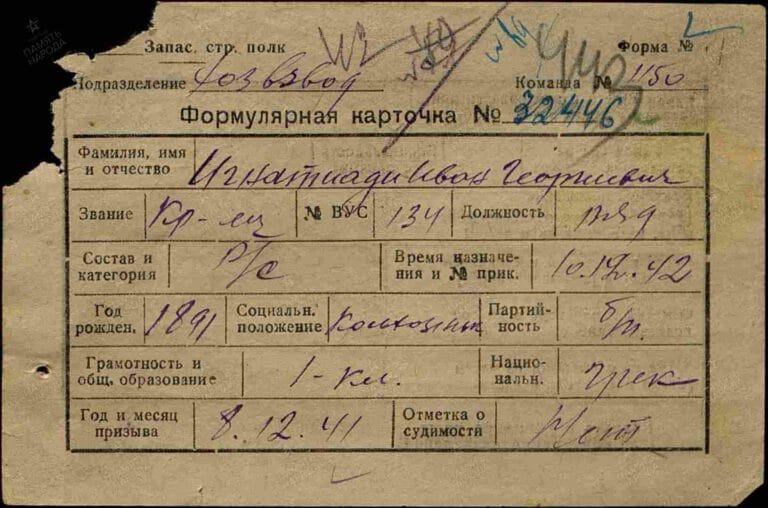 ПАМЯТЬ
НАРОДА
Запас. стр. полк
Форма № 2
Подразделение Хозвзвод
Команда № 1150
443
Формулярная карточка № 32446
Фамилия, имя и отчество Игнатиади Иван Георгиевич
Звание Кр-ец № ВУС 134 Должность ряд
Состав и категория Р/С Время назначения и № прик. 10.12.42
Год рожден. 1891 Социальн. положение Колхозник Партийность б/п.
Грамотность и общ. образование 1-кл. Национальн. Грек
Год и месяц призыва 8.12.41 Отметка о судимости Нет